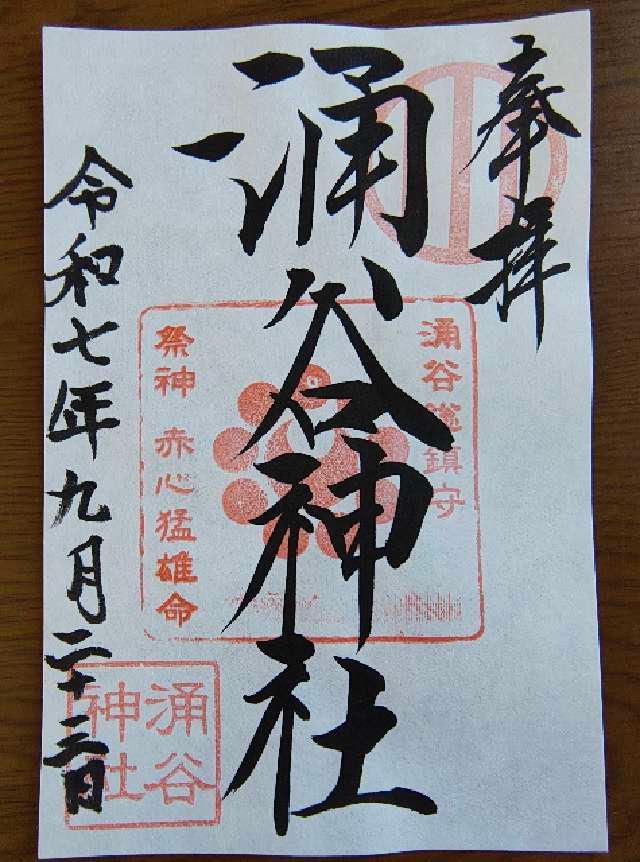 奉拝
涌谷神社
涌谷総鎮守
祭神 赤心猛雄命
涌谷
神社
令和七年九月二十三日